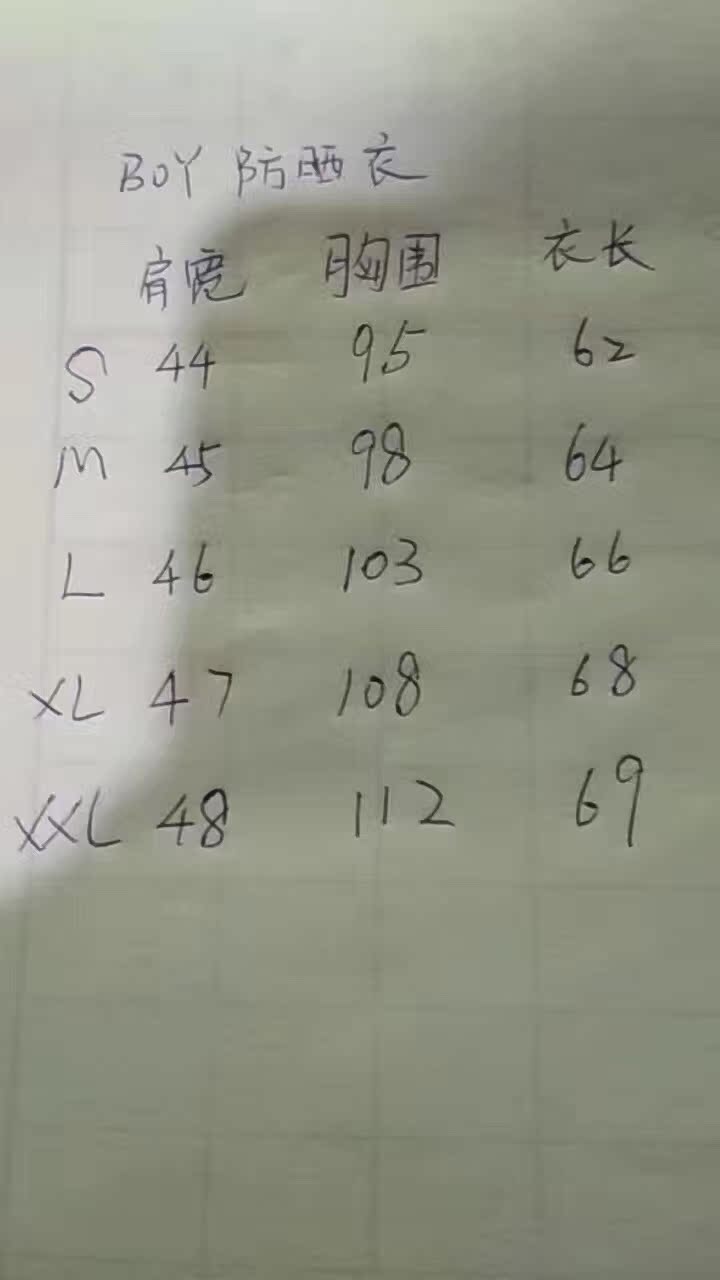 BOY 防晒衣
肩宽 胸围 衣长
S 44 95 62
M 45 98 64
L 46 103 66
XL 47 108 68
XXL 48 112 69